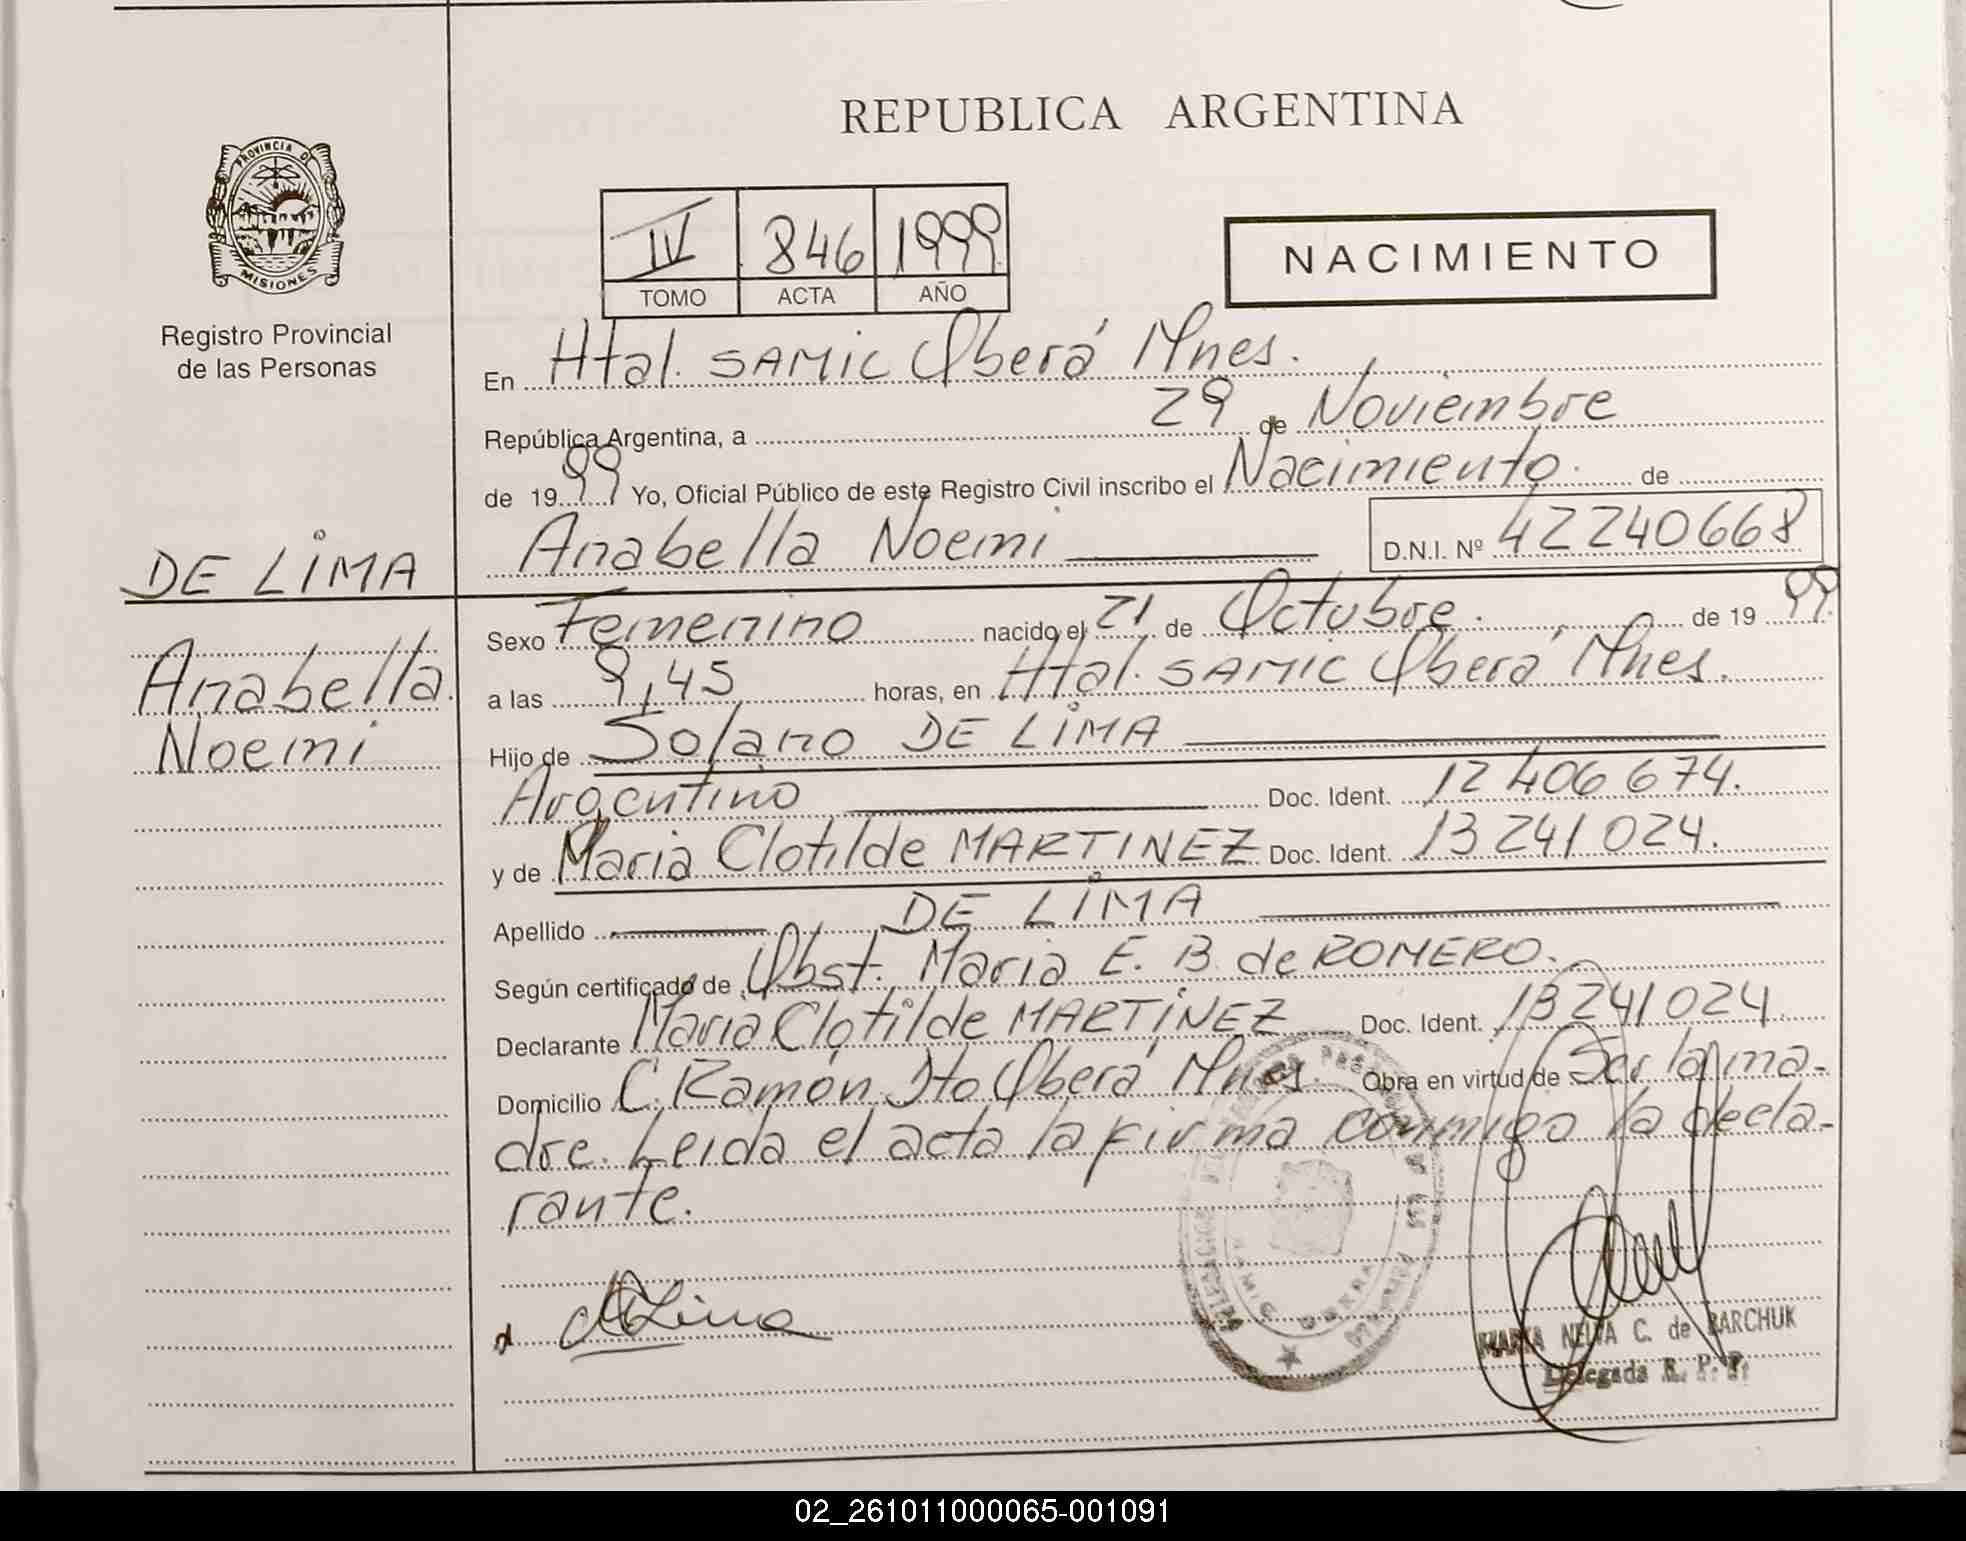 REPUBLICA ARGENTINA
PROVINCIA DE
MISIONES
Registro Provincial
de las Personas
IV 846 1999
TOMO ACTA AÑO
NACIMIENTO
En Htal. SAMIC Oberá Mnes.
República Argentina, a 29 de Noviembre
de 1999 Yo, Oficial Público de este Registro Civil inscribo el Nacimiento. de
Anabella Noemi D.N.I. Nº 42240668
DE LIMA
Anabella
Noemi
Sexo Femenino nacido el 21 de Octubre. de 1999.
a las 9,45 horas, en Htal. SAMIC Oberá Mnes.
Hijo de Solano DE LIMA
Argentino Doc. Ident. 12 406 674.
y de Maria Clotilde MARTINEZ Doc. Ident. 13 241 024.
Apellido DE LIMA
Según certificado de Obst. Maria E. B. de ROMERO.
Declarante Maria Clotilde MARTINEZ Doc. Ident. 13 241 024
Domicilio C. Ramón Oberá Mnes. Obra en virtud de Ser la ma-
dre. Leida el acta la firma conmigo la decla-
rante.
OBERA
MARIA NELVA C. de BARCHUK
Delegada R. P. P.
02_261011000065-001091